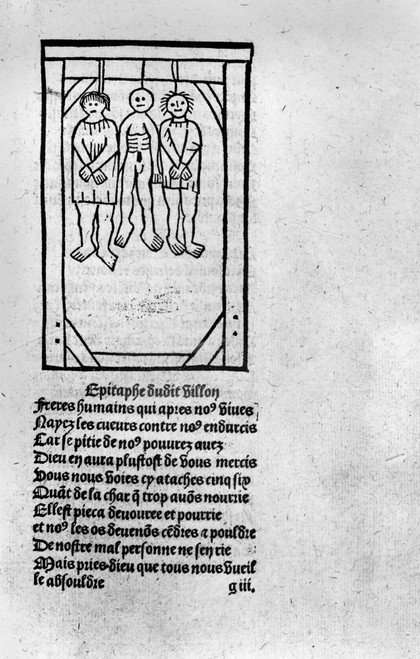 Epitaphe dudit Villon
Freres humains qui apres noꝰ viues
Nayez les cueurs contre noꝰ endurcis
Car se pitie de noꝰ pouurez auez
Dieu en aura plustost de vous mercis
Vous nous voies cy ataches cinq six
Quãt de la char q̃ trop auõs nourrie
Ellest pieca deuouree et pourrie
et noꝰ les os deuenõs cẽdres ⁊ pouldre
De nostre mal personne ne sen rie
Mais pries dieu que tous nous vueil
le absouldre
g iii.